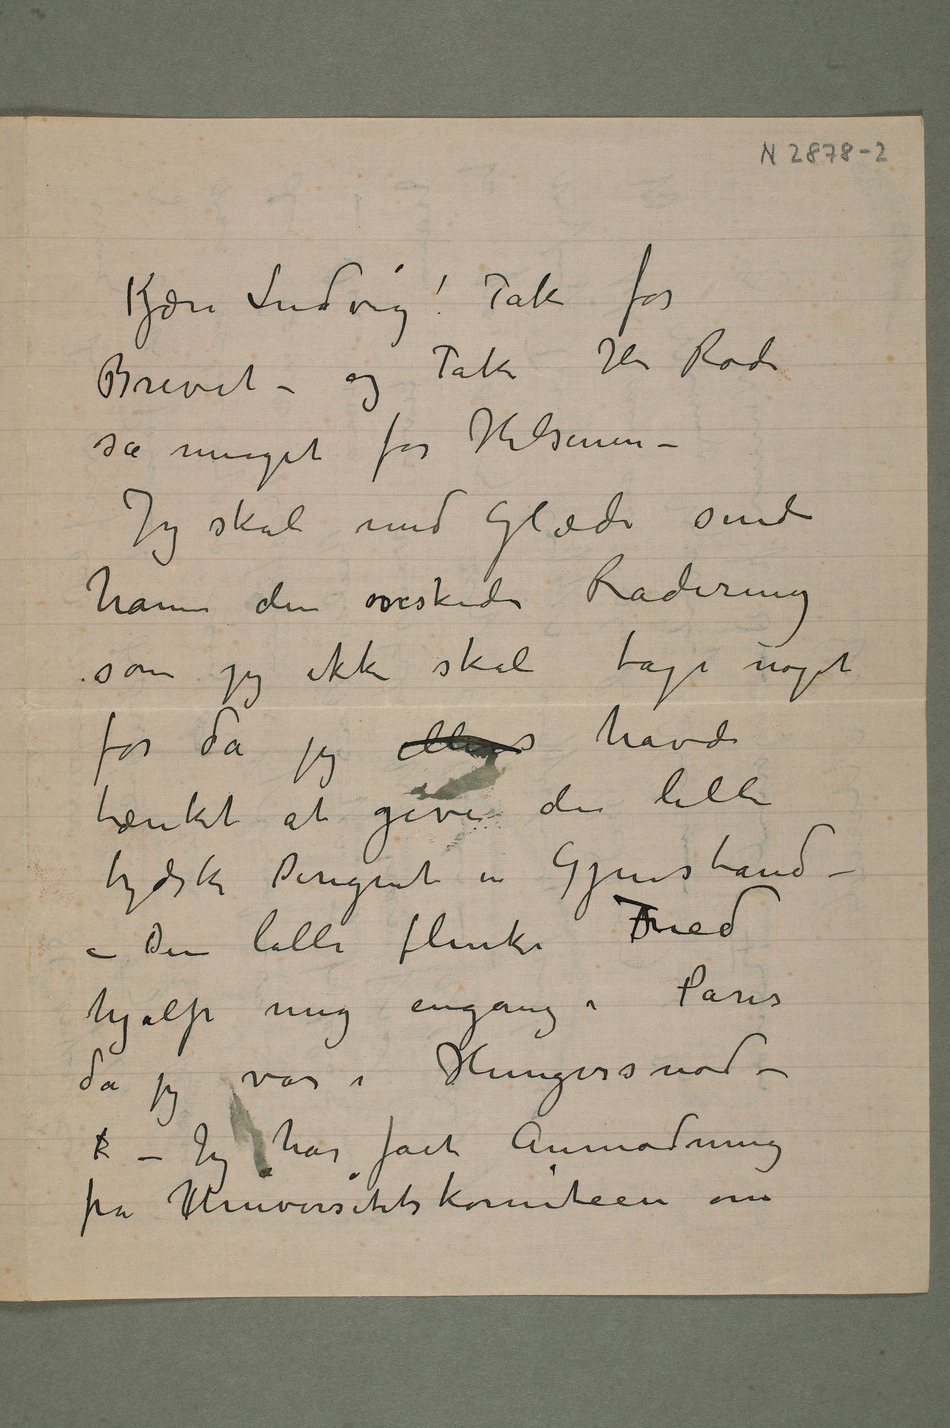 N 2878-2
Kjære Ludvig! Tak for
Brevet – og Tak Hr Rode
så meget for Hilsenen –
Jeg skal med Glæde sende
ham den ønskede Radering
som jeg ikke skal tage noget
for da jeg ellers havde
tænkt at give den lille
tydske Dirigent en Gjenstand –
– Den lille flinke Fried
hjalp mig engang i Paris
da jeg var i Hungersnød –
– Jeg har fået Anmodning
fra Universitetskomiteen om